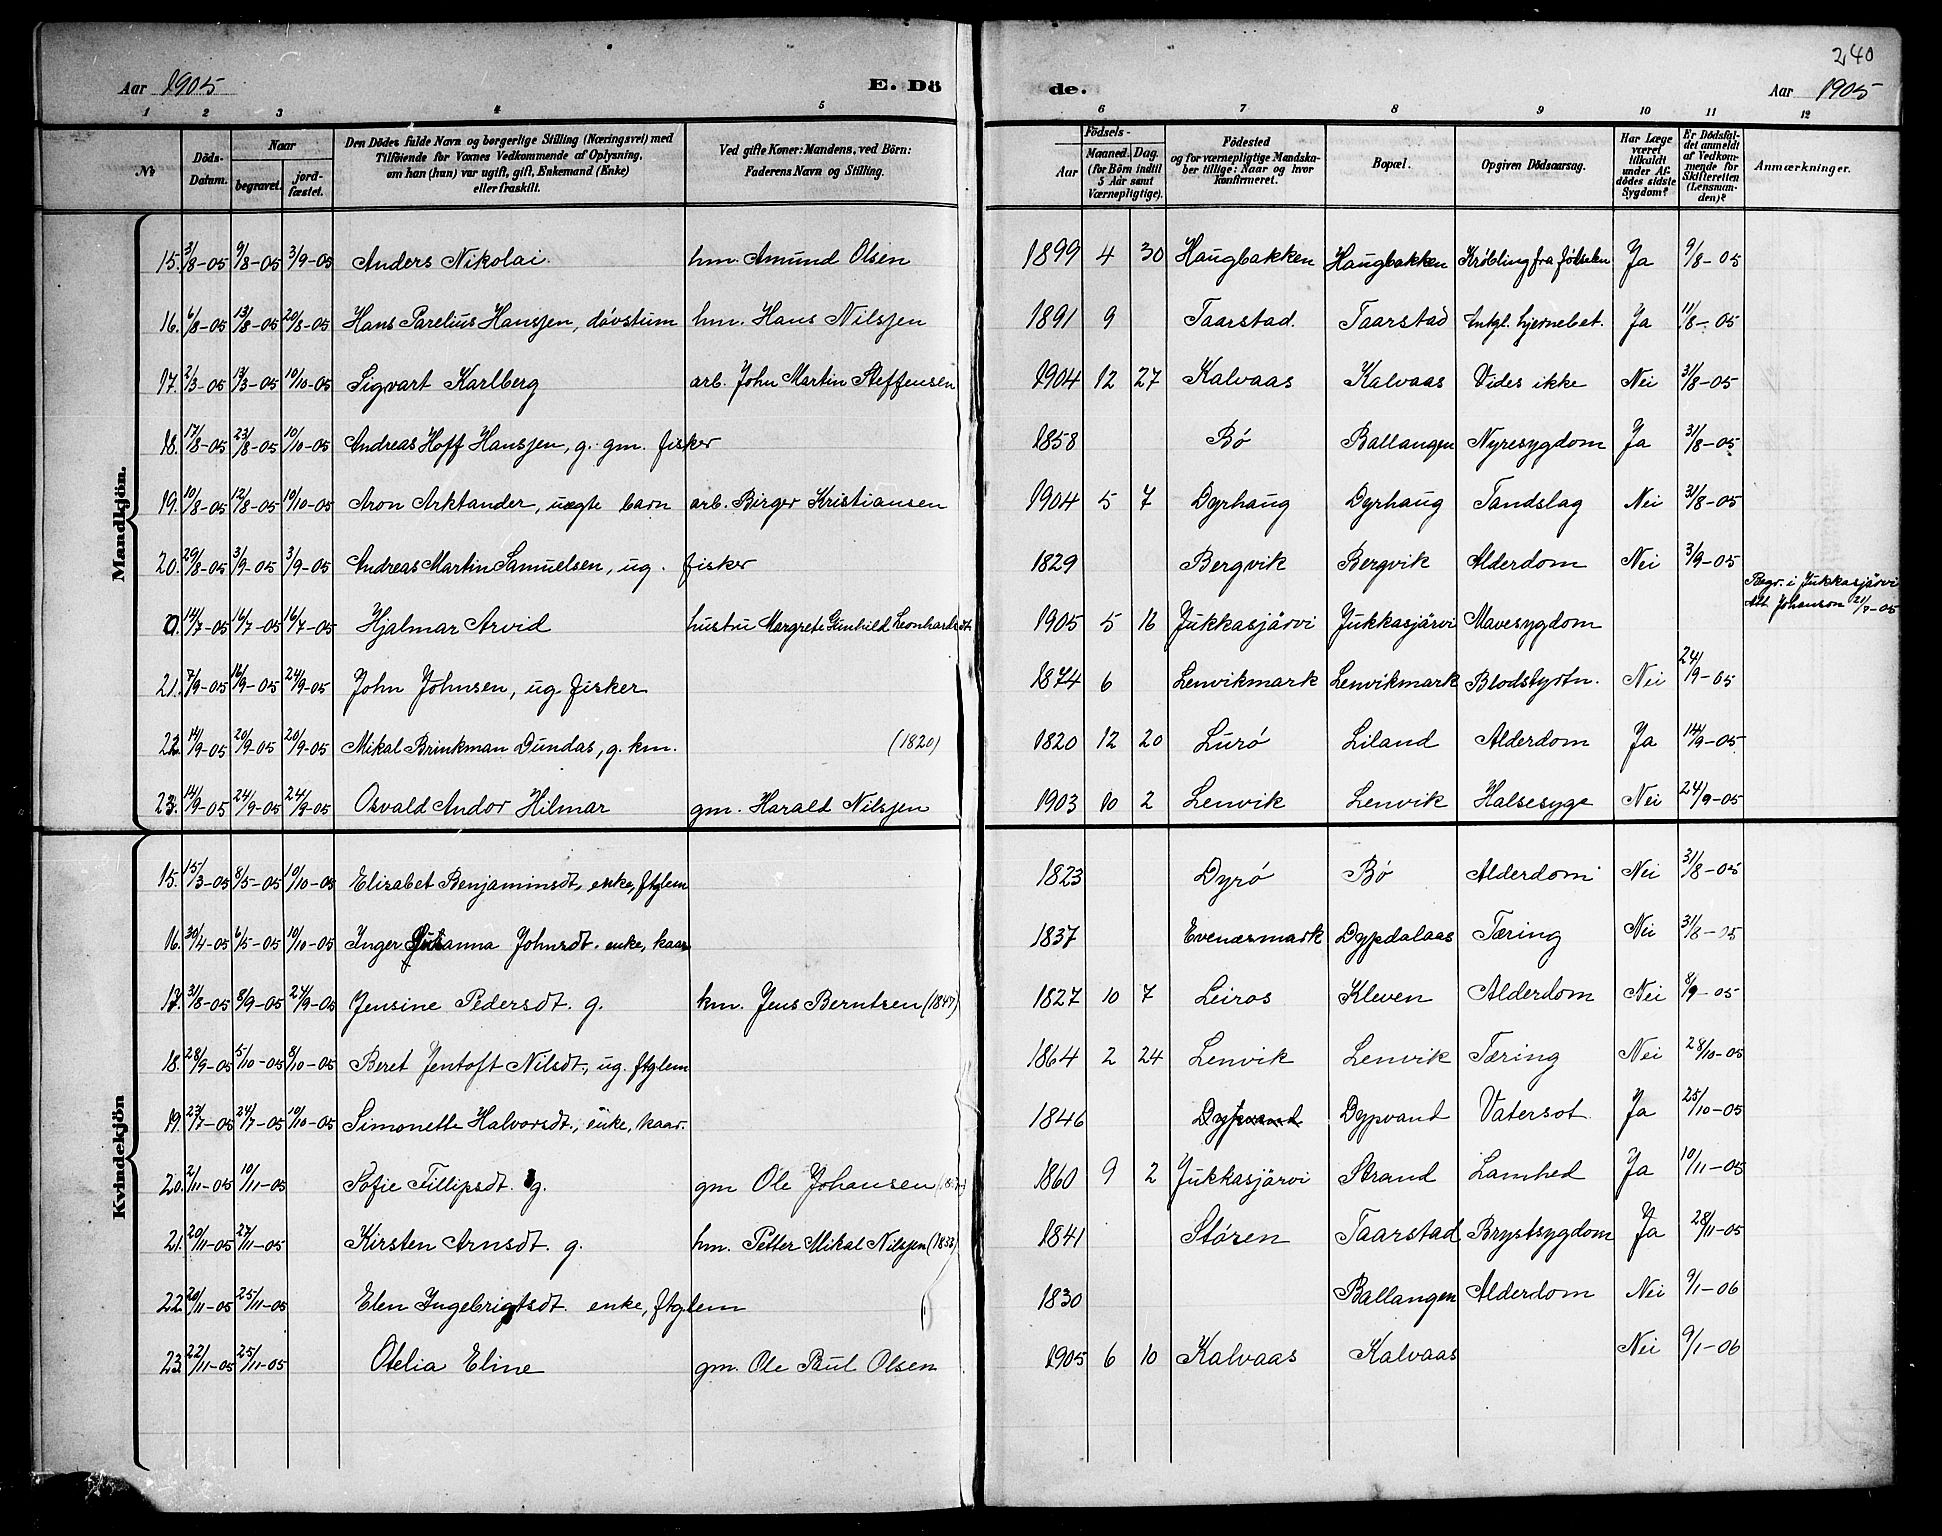 240
Aar 1905 E. Dö de. Aar 1905
1 2 3 4 5 6 7 8 9 10 11 12
No
Döds-Datum.
Naar
begravet.
jord-fæstet.
Den Dödes fulde Navn og borgerlige Stilling (Næringsvei) med
Tilföiende for Voxnes Vedkommende af Oplysning,
om han (hun) var ugift, gift, Enkemand (Enke)
eller fraskilt.
Ved gifte Koner: Mandens, ved Börn:
Faderens Navn og Stilling.
Födsels-
Aar
Maaned. Dag.
(for Börn indtil
5 Aar samt
Værnepligtige).
Födested
og for værnepligtige Mandska-
ber tillige: Naar og hvor
konfirmeret.
Bopæl.
Opgiven Dödsaarsag.
Har Læge
været
tilkaldt
under Af-
dödes sidste
Sygdom?
Er Dödsfal-
det anmeldt
af Vedkom-
mende for
Skifteretten
(Lensman-
den)?
Anmærkninger.
Mandkjön.
15. 3/8-05 9/8-05 3/9-05 Anders Nikolai. hm. Amund Olsen 1899 4 30 Haugbakken Haugbakken Krøbling fra fødselen Ja 9/8-05
16. 6/8-05 13/8-05 20/8-05 Hans Parelius Hansjen, døvstum hm. Hans Nilsjen 1891 9 Taarstad. Taarstad Antgl. hjernebet. Ja 11/8-05
17. 2/3-05 13/3-05 10/10-05 Sigvart Karlberg arb. John Martin Steffensen 1904 12 27 Kalvaas Kalvaas Vides ikke Nei 31/8-05
18. 17/8-05 23/8-05 10/10-05 Andreas Hoff Hansjen, g. gm. fisker 1858 Bø Ballangen Nyresygdom Ja 31/8-05
19. 10/8-05 12/8-05 10/10-05 Aron Arktander, uægte barn arb. Birger Kristiansen 1904 5 7 Dyrhaug Dyrhaug Tandslag Nei 31/8-05
20. 29/8-05 3/9-05 3/9-05 Andreas Martin Samuelsen, ug. fisker 1829 Bergvik Bergvik Alderdom Nei 3/9-05
Begr. i Jukkasjärvi
Att Johanson 21/7-05
0. 14/7-05 16/7-05 16/7-05 Hjalmar Arvid hustru Margrete Gunhild Leonhardsdt. 1905 5 16 Jukkasjärvi Jukkasjärvi Mavesygdom
21. 7/9-05 16/9-05 24/9-05 John Johnsen, ug. fisker 1874 6 Lenvikmark Lenvikmark Blodstyrtn. Nei 24/9-05
22. 14/9-05 20/9-05 20/9-05 Mikal Brinkman Dundas, g. km. (1820) 1820 12 20 Lurø Liland Alderdom Ja 14/9-05
23. 14/9-05 24/9-05 24/9-05 Osvald Andor Hilmar gm. Harald Nilsjen 1903 10 2 Lenvik Lenvik Halsesyge Nei 24/9-05
Kvindekjön
15. 15/3-05 8/5-05 10/10-05 Elisabet Benjaminsdt, enke, ftglem 1823 Dyrø Bø Alderdom Nei 31/8-05
16. 30/4-05 6/5-05 10/10-05 Inger Susanna Johnsdt. enke, kaar 1837 Evenæsmark Dypdalaas Tæring Nei 31/8-05
17. 31/8-05 8/9-05 24/9-05 Jensine Pedersdt. g. km. Jens Berntsen (1847) 1827 10 7 Leiros Kleven Alderdom Nei 8/9-05
18. 28/9-05 5/10-05 8/10-05 Beret Jentoft Nilsdt, ug. ftglem 1864 2 24 Lenvik Lenvik Tæring Nei 28/10-05
19. 23/7-05 24/7-05 10/10-05 Simonette Halvorsdt., enke, kaar. 1846 Dypvand Dypvand Vatersot. Ja 25/10-05
20. 2/11-05 10/11-05 Sofie Fillipsdt. g. gm Ole Johansen 1860 9 2 Jukkasjärvi Strand Lamhed Ja 10/11-05
21. 20/11-05 27/11-05 Kirsten Arnsdt. g. hm. Petter Mikal Nilsjen (1853) 1841 Støren Taarstad Brystsygdom Ja 28/11-05
22. 20/11-05 25/11-05 Elen Ingebrigtsdt. enke, ftglem 1830 Ballangen Alderdom Nei 9/1-06
23. 22/11-05 25/11-05 Otelia Eline gm. Ole Paul Olsen 1905 6 10 Kalvaas Kalvaas Nei 9/1-06